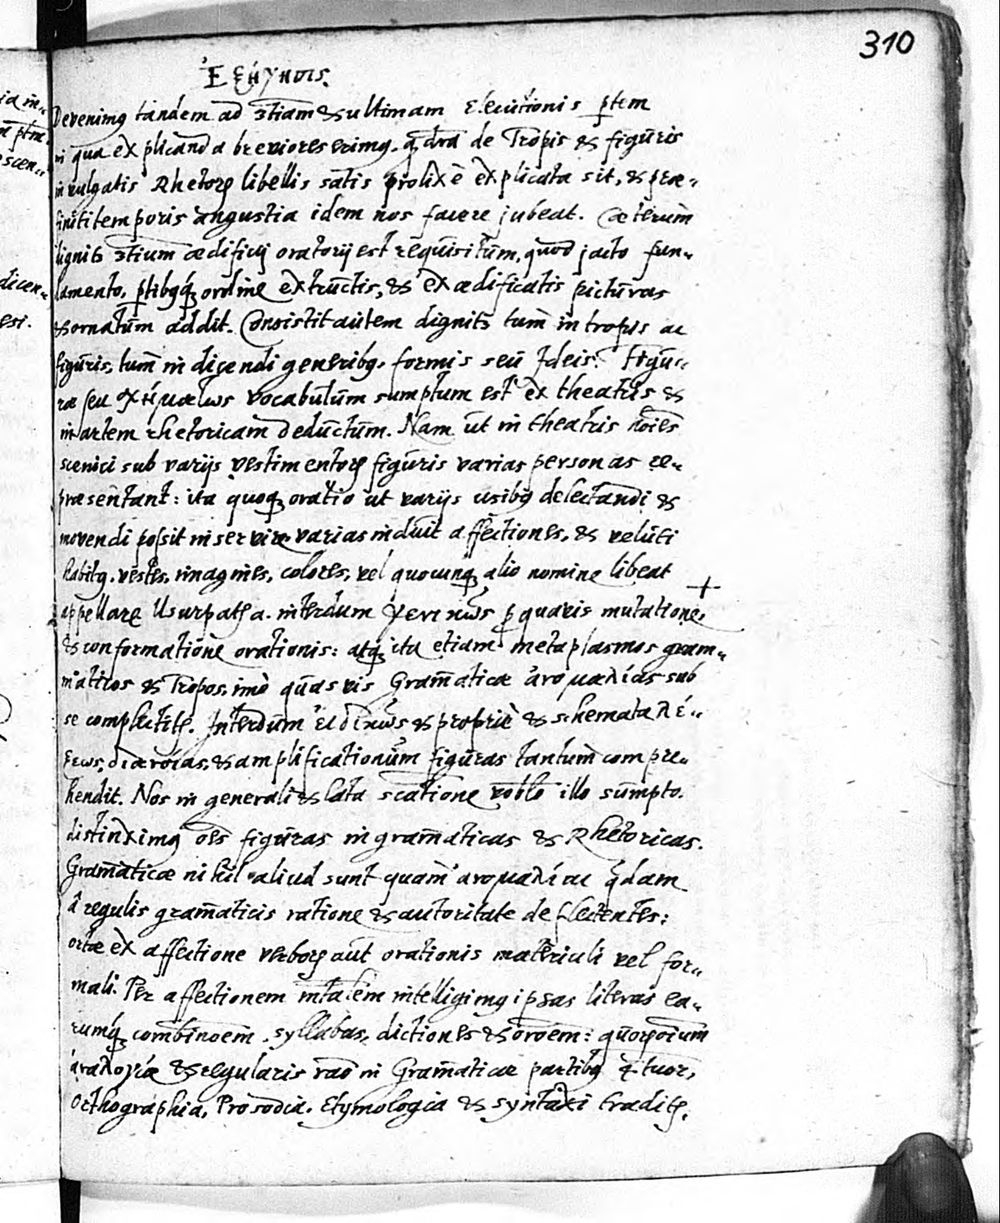 310
Ἐξήγησις.
Devenimꝰ tandem ad 3tiam & ultimam Elecutionis ꝑtem
in qua explicanda breviores erimꝰ. de Tropis & figuris
in vulgatis Rhetorꝝ libellis satis prolixè explicata sit, & præ-
finiti temporis angustia idem nos facere jubeat. Cæterum
dignitˢ 3tium ædificij oratorij est requisitum, quod jacto fun-
damento, ꝑtibꝰqꝫ ordine extructis, & exædificatis picturas
& ornatum addit. Consistit autem dignitˢ tum in tropis ac
figuris, tum in dicendi generibꝰ, formis seu Ideis. Figu-
ræ seu σχήματος vocabulum sumptum est ex theatris &
in artem rhetoricam deductum. Nam ut in theatris hoīes
scenici sub varijs vestimentorꝝ figuris varias personas re-
præsentant: ita quoqꝫ oratio ut varijs usibꝰ delectandi &
movendi possit inservire varias induit affectiones, & veluti
habitꝰ, vestes, imagines, colores, vel quocunqꝫ alio nomine libeat
appellare. Usurpatꝭ a. interdum γενικῶς ꝓ quavis mutatione,
& conformatione orationis: atqꝫ ita etiam metaplasmos gram-
maticos & Tropos, imò quasvis Gram̄aticæ ἀνομαλίας sub
se complectitꝭ. Interdum εἰδικῶς & propriè & schemata λέ-
ξεως, διανοίας, & amplificationum figuras tantum compre-
hendit. Nos in generali & lata vocablo illo sumpto
distinximꝰ oēs figuras in gram̄aticas & Rhetoricas.
Gram̄aticæ nihil aliud sunt quam ἀνομαλίαι qdam
â regulis gram̄aticis ratione & autoritate deflectentes:
ortæ ex affectione verborꝝ aut orationis materiali vel for-
mali. Per affectionem mtalem intelligimꝰ ipsas literas ea-
rumqꝫ combinoem, syllabas, dictiones & oroem: quorporum
ἀναλογία & regularis rao in Gram̄aticæ partibꝰ qtuor,
Orthographia, Prosodia, Etymologia & syntaxi traditꝭ.